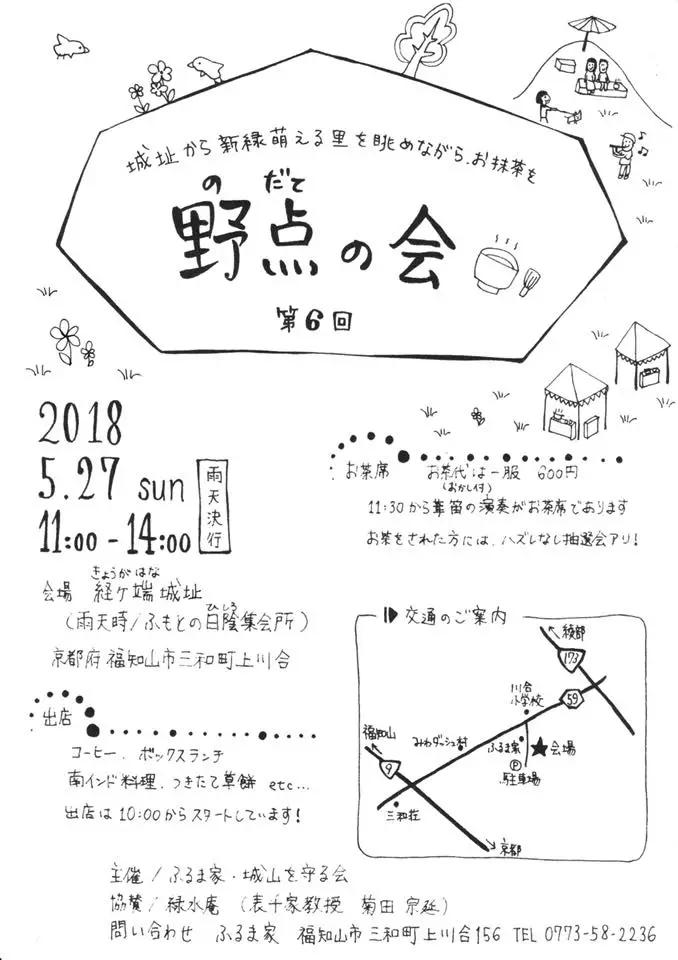 城址から新緑萌える里を眺めながら、お抹茶を
の だて
野点の会
第6回
2018
5.27 sun
11:00 - 14:00
雨天決行
きょうがはな
会場 経ヶ端城址
ひじろ
(雨天時/ふもとの日陰集会所)
京都府福知山市三和町上川合
お茶席 お茶代は一服 600円
(おかし付)
11:30から篳笛の演奏がお茶席であります
お茶をされた方には、ハズレなし抽選会アリ!
出店
コーヒー、ボックスランチ
南インド料理、つきたて草餅 etc...
出店は10:00からスタートしています!
交通のご案内
綾部
173
59
川合
小学校
福知山
みわダッシュ村
ふるま家
会場
P
駐車場
9
三和荘
京都
主催/ふるま家・城山を守る会
協賛/緑水庵 (表千家教授 菊田 宗延)
問い合わせ ふるま家 福知山市三和町上川合156 TEL 0773-58-2236